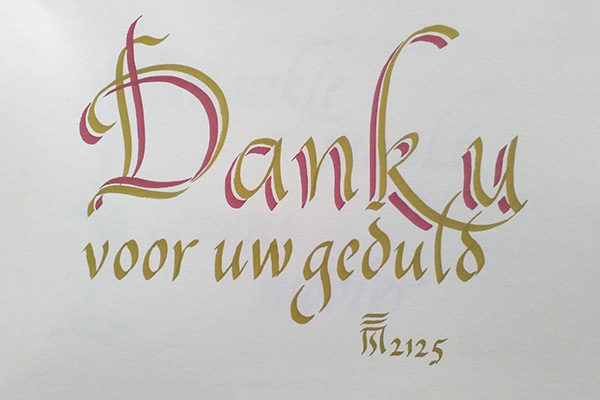 Dank u
voor uw geduld
2125